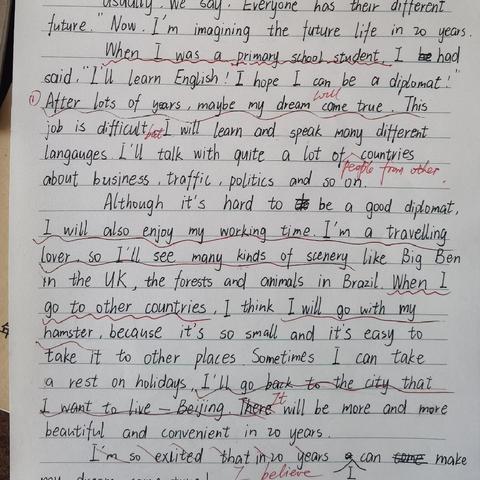 usually, we say. "Everyone has their different
future." Now. I'm imagining the future life in 20 years.
When I was a primary school student, I had
said, "I'll learn English! I hope I can be a diplomat!"
will
① After lots of years, maybe my dream come true. This
job is difficult, but I will learn and speak many different
langauges. I'll talk with quite a lot of countries
people from other
about business, traffic, politics and so on.
Although it's hard to be a good diplomat,
I will also enjoy my working time. I'm a travelling
lover, so I'll see many kinds of scenery like Big Ben
in the UK, the forests and animals in Brazil. When I
go to other countries, I think I will go with my
hamster, because it's so small and it's easy to
take it to other places. Sometimes I can take
a rest on holidays, I'll go back to the city that
It
I want to live — Beijing. There will be more and more
beautiful and convenient in 20 years.
I'm so exlited that in 20 years can make
I believe I
my dream come true!